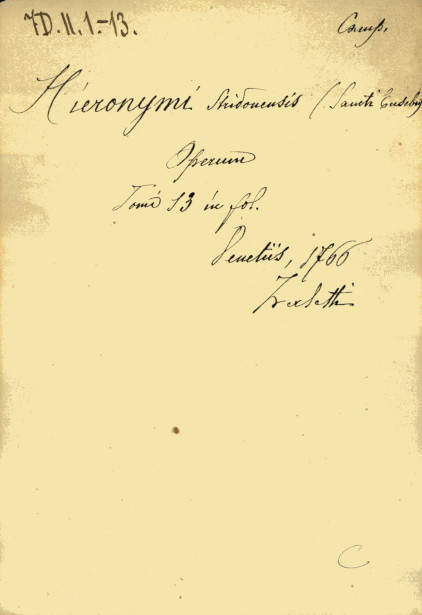 7D. II. 1.-13.
Comp.
Hieronymi Stridonensis (Sancti Eusebii
Operum
Tomi 13 in fol.
Venetiis, 1766
Zaletti
C